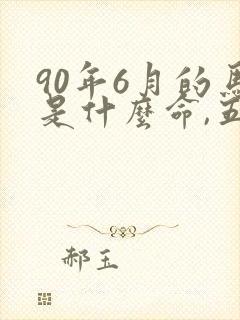 90年6月的馬
是什麼命,五
郝玉